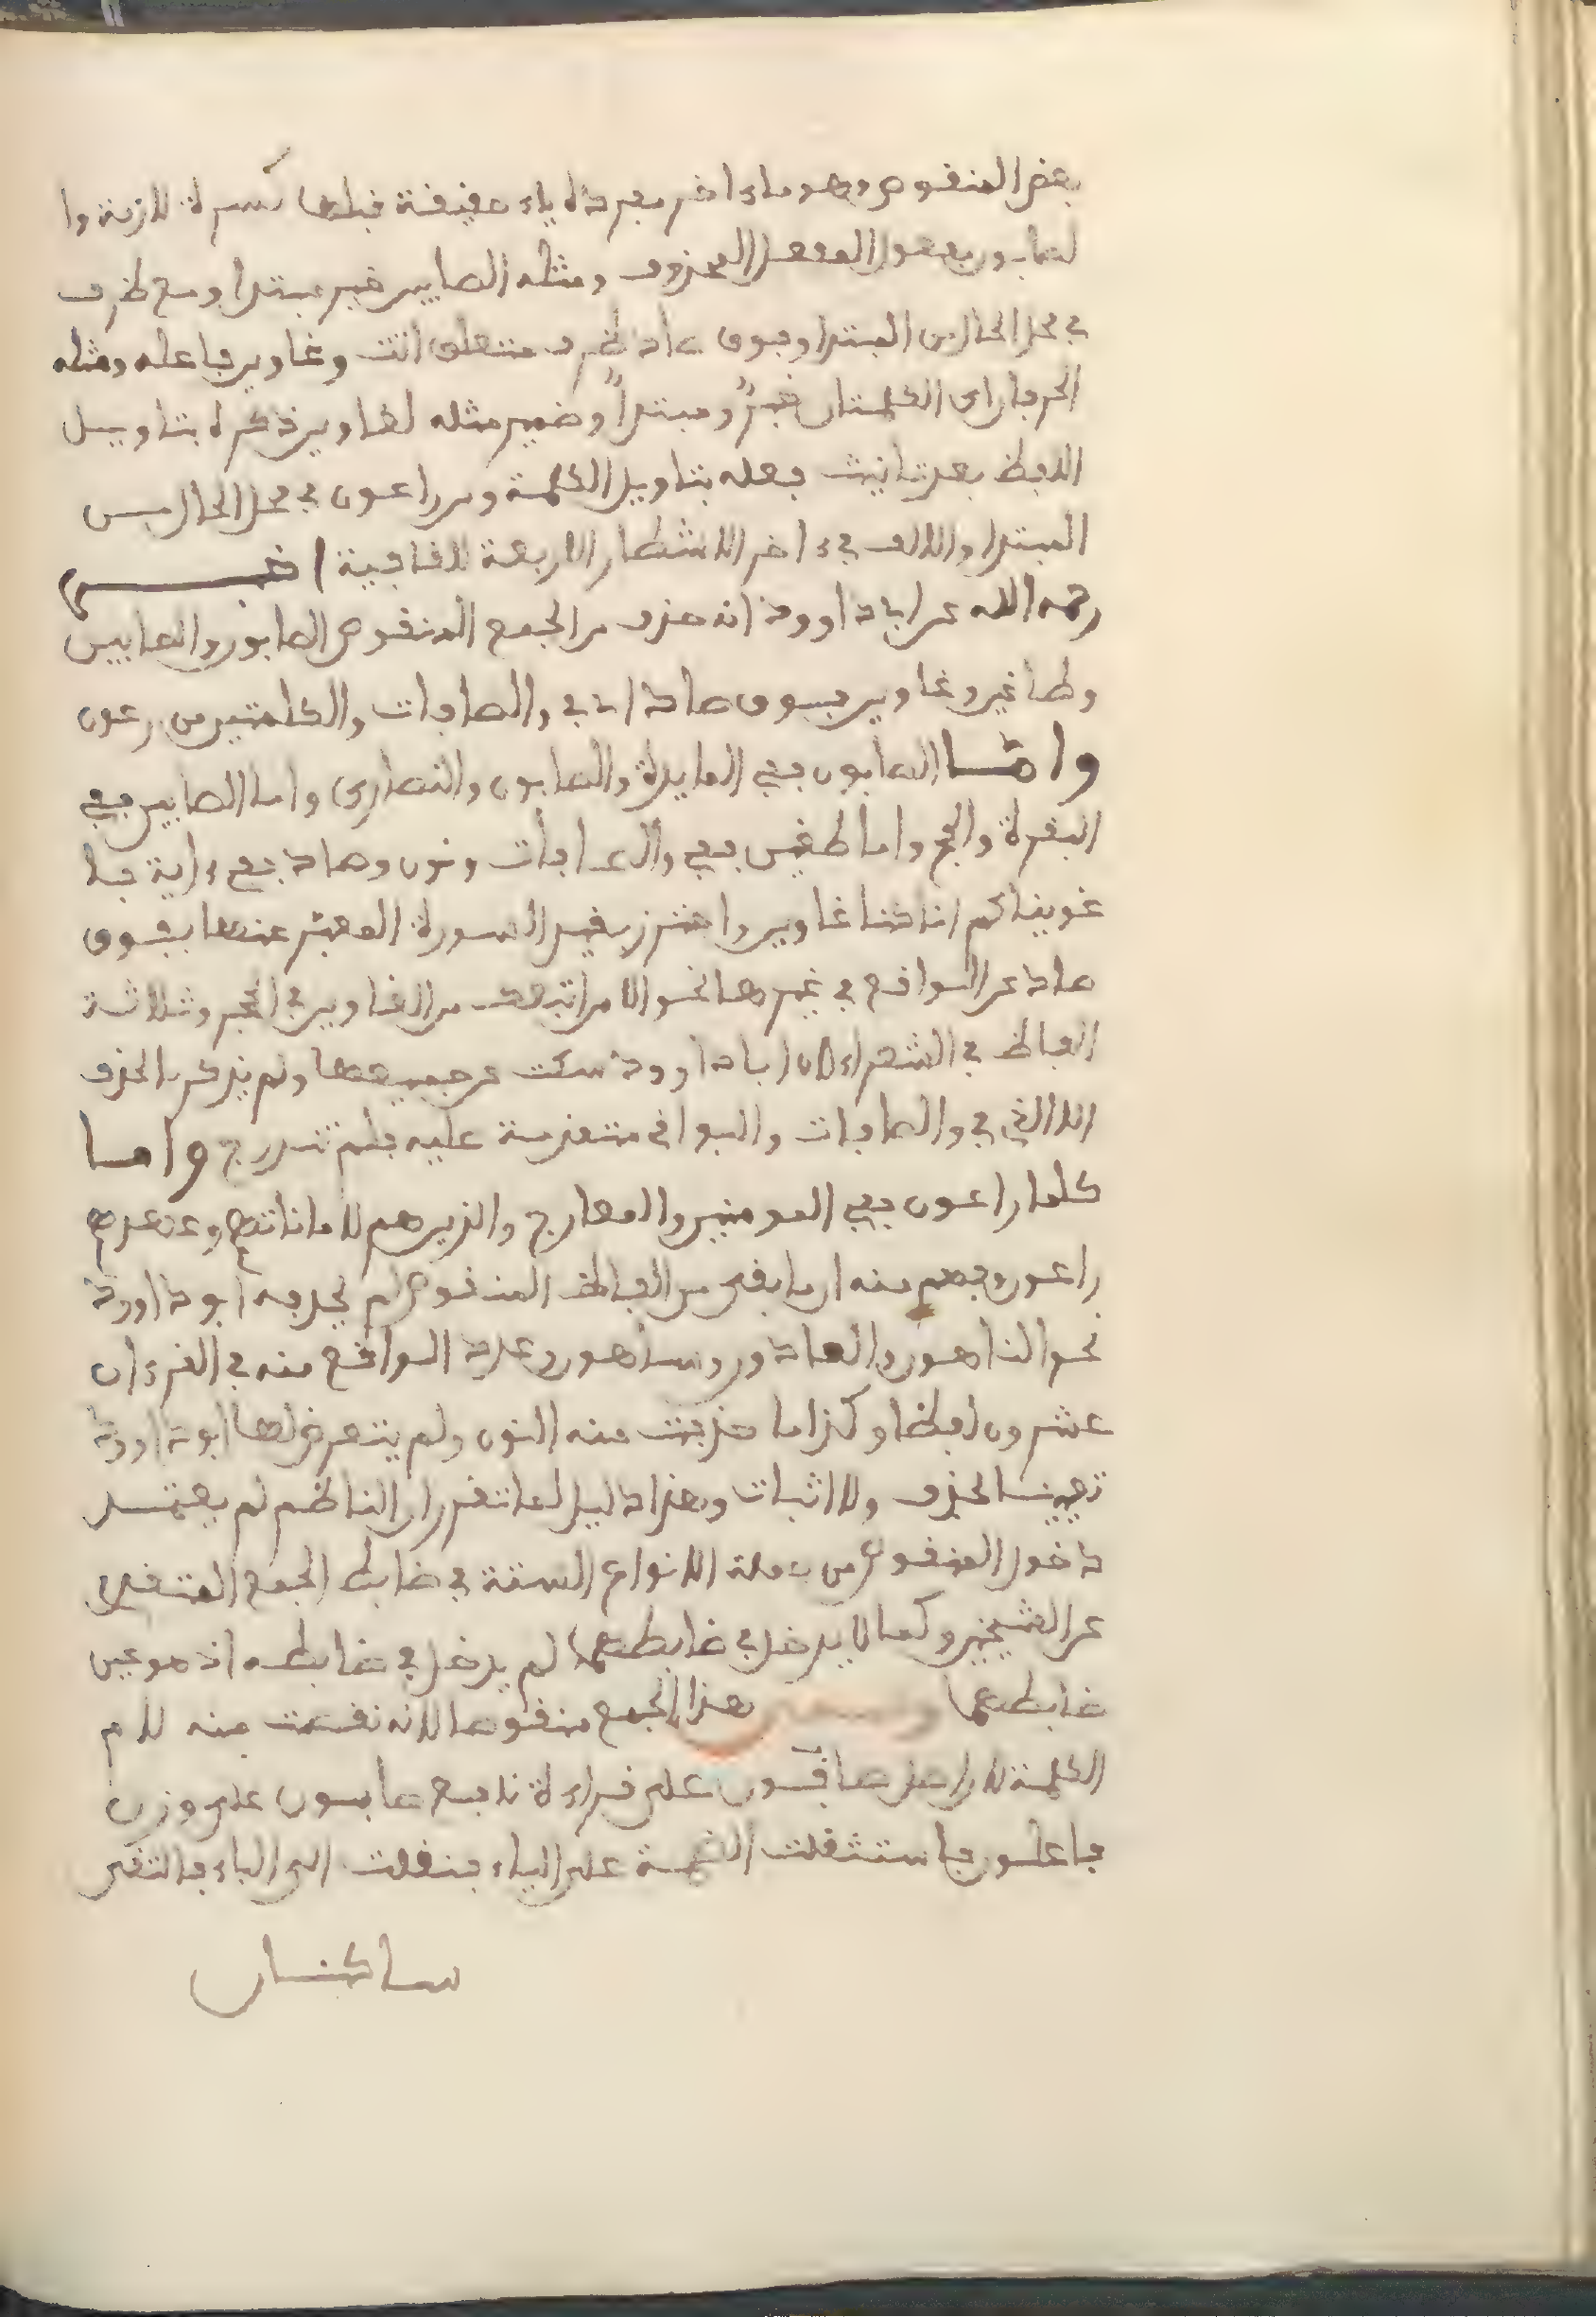 بعض المنقوص وهو ما ءاخر مفرده ياء خفيفة قبلها كسرة لازمة وا
لصابون مفعول الفعل المحذوف ومثله الصابين خبر مبتدا ومع ظرف
في محل الحال من المبتدا وفوق صاد ظرف متعلق اتت وغاوين فاعله ومثله
الحرفان اي الكلمتان خبر ومبتدا وضمير مثله لغاوين ذكره بتاويل
اللفظ بعد تانيث فعله بتاويل الكلمة ومن راعون في محل الحال من
المبتدا والالف في ءاخر الاشطار الاربعة للقافية اخبر
رحمه الله عن ابي داوود انه حذف من الجمع المنقوص الصابون والصابين
وطاغين وغاوين فوق صاد اي في والصافات والكلمتين من رعون
واما الصابون ففي المايدة والصابون والنصارى واما الصابين ففي
البقرة والحج واما طغين ففي والصافات ونون وصاد ففي ءاية
غويناكم انا كنا غاوين واحترز بقيد السورة المعبر عنها بفوق
صاد عن الواقع في غيرها نحو الا من اتبعك من الغاوين في الحجر وثلاثة
الفاظ في الشعراء لان ابا داوود سكت عن جميعها ولم يذكر بالحذف
الا الذي في والصافات والبواقي متقدمة عليه فلم تندرج واما
كلما راعون ففي المومنين والمعارج والذين هم لاماناتهم وعهدهم
راعون وفهم منه ان ما بقي من الفاظ المنقوص لم يحذفه ابو داوود
نحو الناهون والعادون وساهون وعدد الواقع منه في القرءان
عشرون لفظا وكذا ما حذفت منه النون ولم يتعرض لها ابو داوود
تعيينا لحذف ولا اثبات وهذا دليل لما تقرر ان الناظم لم يعتمد
دخول المنقوص من جملة الانواع الستة في ضابط الجمع المتقدم
عن الشيخين وكما لا يدخل في ضابطهما لم يدخل في ضابطه اذ هو عين
ضابطهما هذا الجمع منقوصا لانه نقصت منه لام
الكلمة لان اصل صابون على قراءة نافع صابيون على وزن
فاعلون فاستثقلت الضمة على الياء فنقلت الى الباء فالتقى
ساكنان